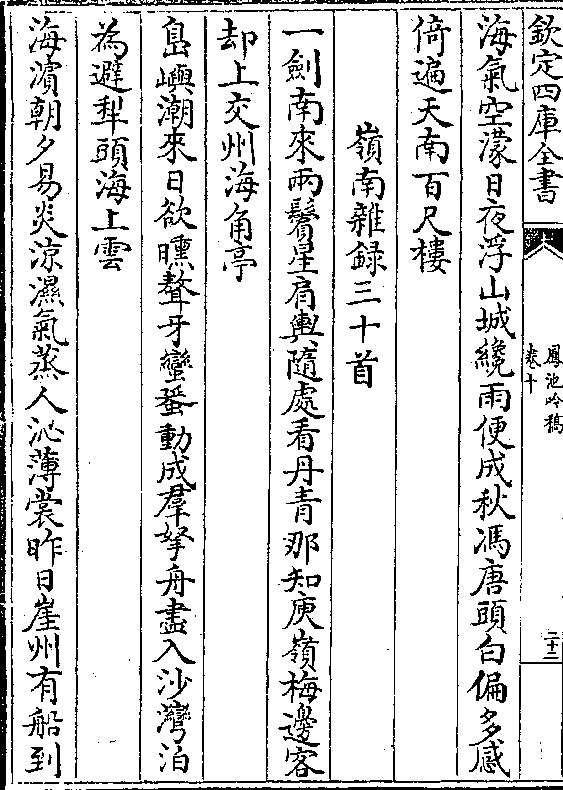 欽定四庫全書
鳳池吟稿
卷十
二十二
海氣空濛日夜浮山城纔雨便成秋馮唐頭白偏多感
倚遍天南百尺樓
嶺南雜録三十首
一劍南來兩鬢星肩輿隨處看丹青那知庾嶺梅邊客
却上交州海角亭
島嶼潮來日欲曛聱牙蠻蜑動成羣拏舟盡入沙灣泊
為避犁頭海上雲
海濵朝夕易炎涼濕氣蒸人沁薄裳昨日崖州有船到